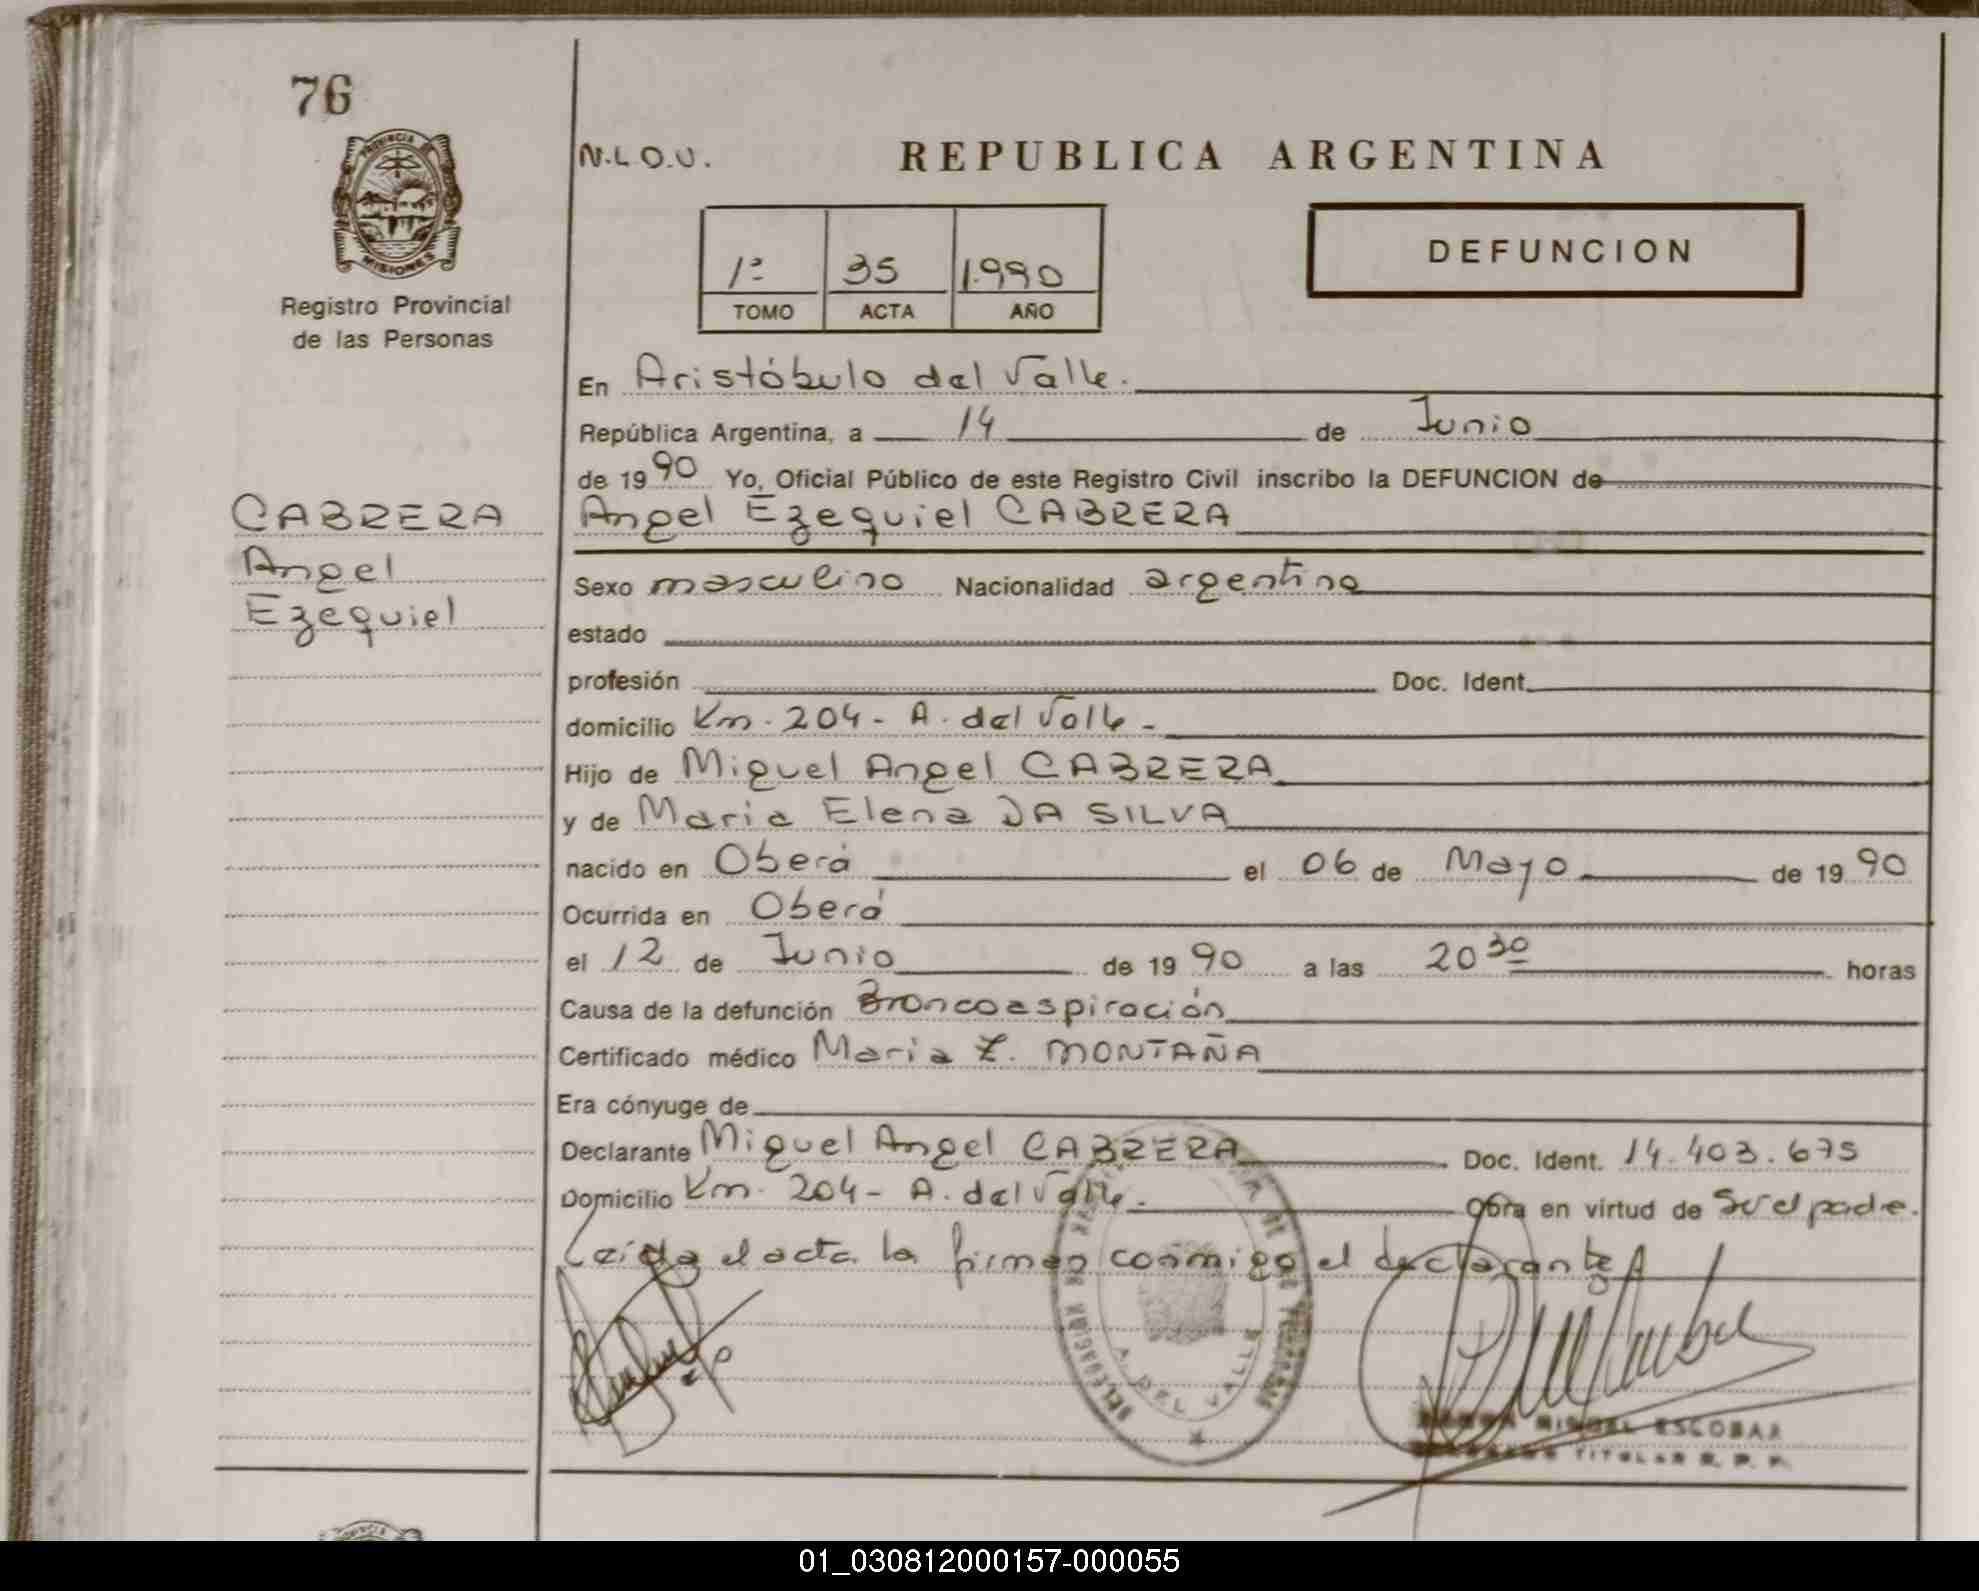 76
PROVINCIA DE
MISIONES
Registro Provincial
de las Personas
CABRERA
Angel
Ezequiel
N.L.O.U.
REPUBLICA ARGENTINA
1º 35 1.990
TOMO ACTA AÑO
DEFUNCION
En Aristóbulo del Valle.
República Argentina, a 14 de Junio
de 1990 Yo, Oficial Público de este Registro Civil inscribo la DEFUNCION de
Angel Ezequiel CABRERA
Sexo masculino Nacionalidad argentina
estado
profesión Doc. Ident.
domicilio Km. 204- A. del Valle -
Hijo de Miguel Angel CABRERA
y de Maria Elena DA SILVA
nacido en Oberá el 06 de Mayo de 1990
Ocurrida en Oberá
el 12 de Junio de 1990 a las 20 30 horas
Causa de la defunción Broncoaspiración
Certificado médico Maria Z. MONTAÑA
Era cónyuge de
Declarante Miguel Angel CABRERA Doc. Ident. 14.403.675
Domicilio Km. 204- A. del Valle. Obra en virtud de Ser el padre.
Leída el acta la firman conmigo el declarante
DELEGACION
A. DEL VALLE
MIGUEL ESCOBAR
TITULAR R. P. P.
01_030812000157-000055